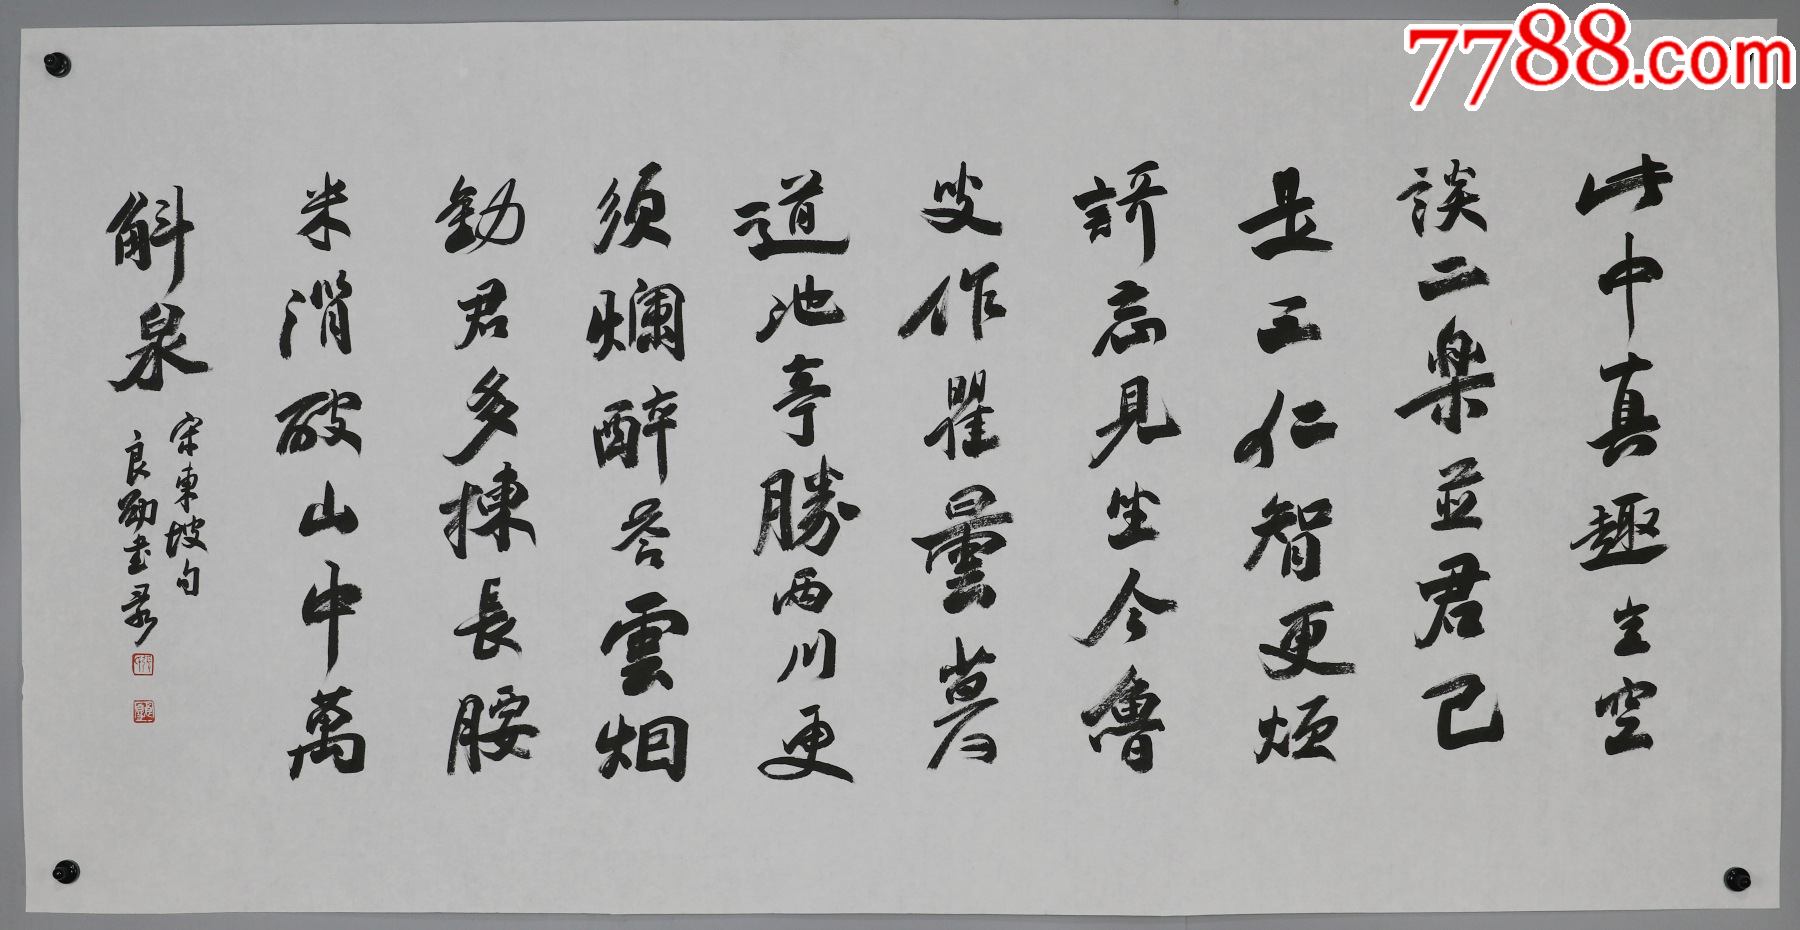 此中真趣豈空
談二樂並君已
是三仁智更煩
訶忘見坐今魯
叟作瞿曇莫
道池亭勝两川更
須爛醉答雲烟
勸君多揀長腰
米消破山中萬
斛泉
宋東坡句
良勁书录
7788.com